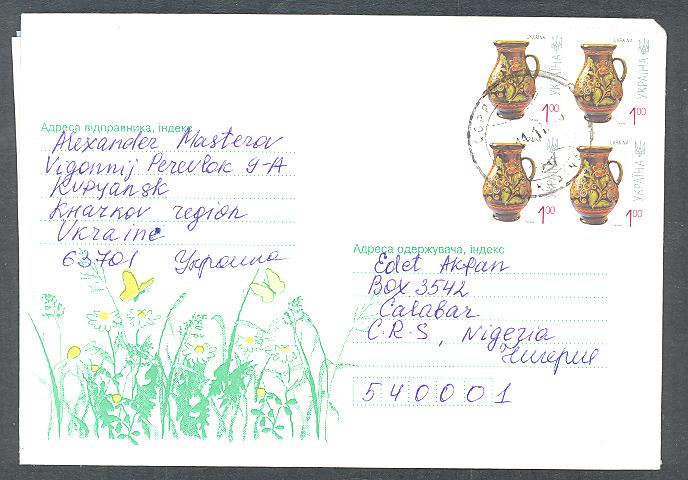 Адреса відправника, індекс
Alexander Masterov
Vigonnij Perevlok 9-A
Kupyansk
Kharkov region
Ukraine
63701 Украина
UKRAINA
УКРАЇНА
1.00
UKRAINA
УКРАЇНА
1.00
УКРАЇНА
1.00
UKRAINA
УКРАЇНА
1.00
Адреса одержувача, індекс
Edet Akpan
Box 3542
Calabar
C.R-S, Nigeria
Нигерия
540001